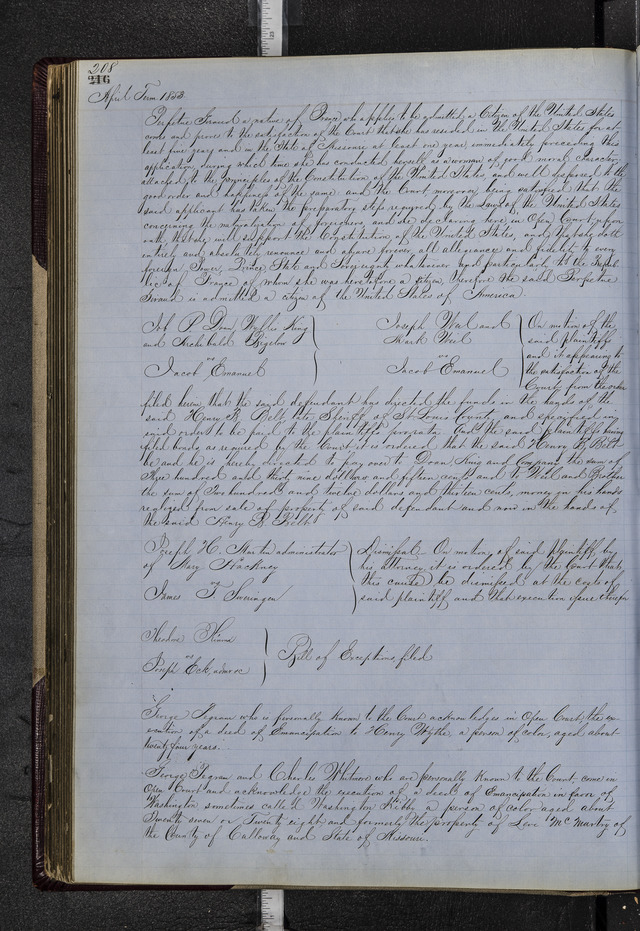 208
216
April Term 1853
Perfetue Giraud a native of France who applies to be admitted a Citizen of the United States
comes and proves to the satisfaction of the Court that she has resided in the United States for at
least five years and in the State of Missouri at least one year immediately preceding this
application, during which time she has conducted herself as a woman of good moral character
attached to the principles of the Constitution of the United States, and well disposed to the
good order and happiness of the same and the Court moreover being satisfied that the
said applicant has taken the preparatory steps required by the Laws of the United States
concerning the naturalization of foreigners and she declaring here in Open Court upon
oath that she will support the Constitution of the United States, and that she doth
entirely and absolutely renounce and abjure forever all allegiance and fidelity to every
foreign Power, Prince State and Sovereignty whatsoever and particularly to the Repub
lic of France of whom she was heretofore a citizen, therefore the said Perfetue
Giraud is admitted a citizen of the United States of America
Job P Doan, Wyllis King
and Archibald Bigelow
vs
Jacob Emanuel
Joseph Weil and
Mark Weil
vs
Jacob Emanuel
On motion of the
said plaintiffs
and it appearing to
the satisfaction of the
Court, from the order
filed herein, that the said defendant has directed the funds in the hands of the
said Henry B. Belt late Sheriff of St Louis County, and specified in
said order to be paid to the plaintiffs prorata. And the said plaintiffs having
filed bonds as required by the Court, it is ordered that the said Henry B. Belt
be and he is hereby directed to pay over to Doan, King and Company the sum of
hundred and thirty nine dollars and fifteen cents and to Weil and Brother
the sum of Two hundred and twelve dollars and thirteen cents, money in his hands
realized from sale of property of said defendant and now in the hands of
the said Henry B Belt
Joseph H. Martin administrator
of Mary Hackney
vs
James T Swearingen
Dismissed – On motion of said plaintiff, by
his attorney, it is ordered by the Court that
this cause be dismissed at the costs of
said plaintiff and that execution issue therefor
Theodore
vs
Joseph Eck, admr &c
Bill of Exceptions filed
George Pegram who is personally known to the Court acknowledges in Open Court, the ex-
ecution of a deed of Emancipation to Henry Wythe, a person of color, aged about
twenty four years.
George Pegram and Charles Whitmore who are personally known to the Court come in
Open Court and acknowledge the execution of a deed of Emancipation in favor of
Washington sometimes called Washington a person of color aged about
Twenty seven or Twenty eight and formerly the property of Levi McMurtry of
the County of Callaway and State of Missouri.